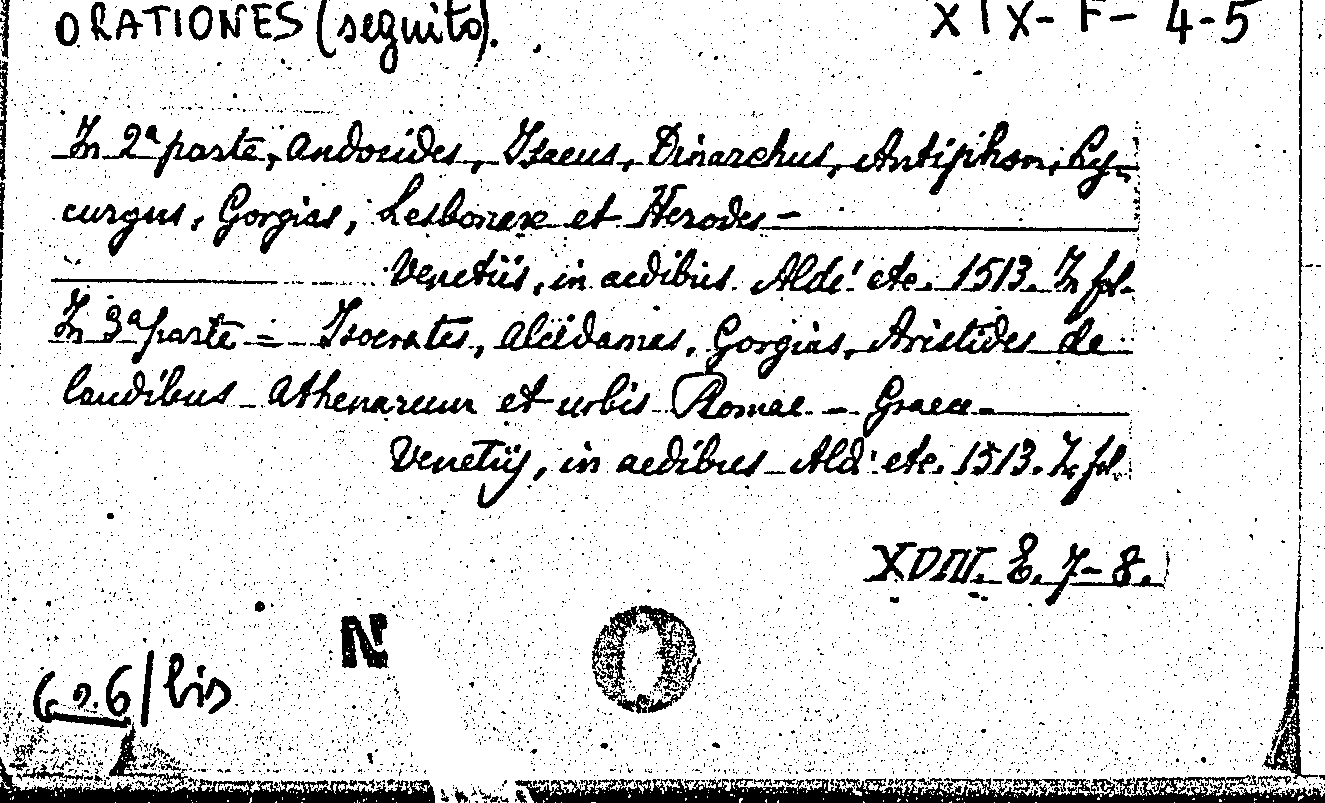 ORATIONES (seguito). XIX-F-4-5
In 2ª parte, Andocides, Isaeus, Dinarchus, Antiphon, Ly-
curgus, Gorgias, Lesbonax et Herodes -
Venetiis, in aedibus Aldi etc. 1513. In fol.
In 3ª parte = Isocrates, Alcidamas, Gorgias, Aristides de
laudibus Athenarum et urbis Romae - Graece -
Venetijs, in aedibus Aldi etc. 1513. In fol.
XVIII. E. 7-8.
N
/bis